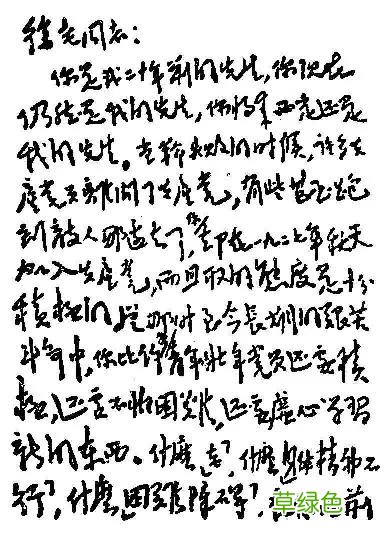 徐老同志：
你是我二十年前的先生，你现在
仍然是我的先生，你将来必定还是
我的先生。当革命失败的时候，许多共
産党员離開了共産党，有些甚至跑
到敌人那边去了，你却在一九二七年秋天
加入共産党，而且取的態度是十分
積極的。从那时至今長期的艰苦
斗争中，你比许多青年壮年党员还要積
極，还要不怕困难，还要虚心学習
新的东西。什麽“老”，什麽“身体精神不
行”，什麽“困难障碍”，在你面前
草绿色